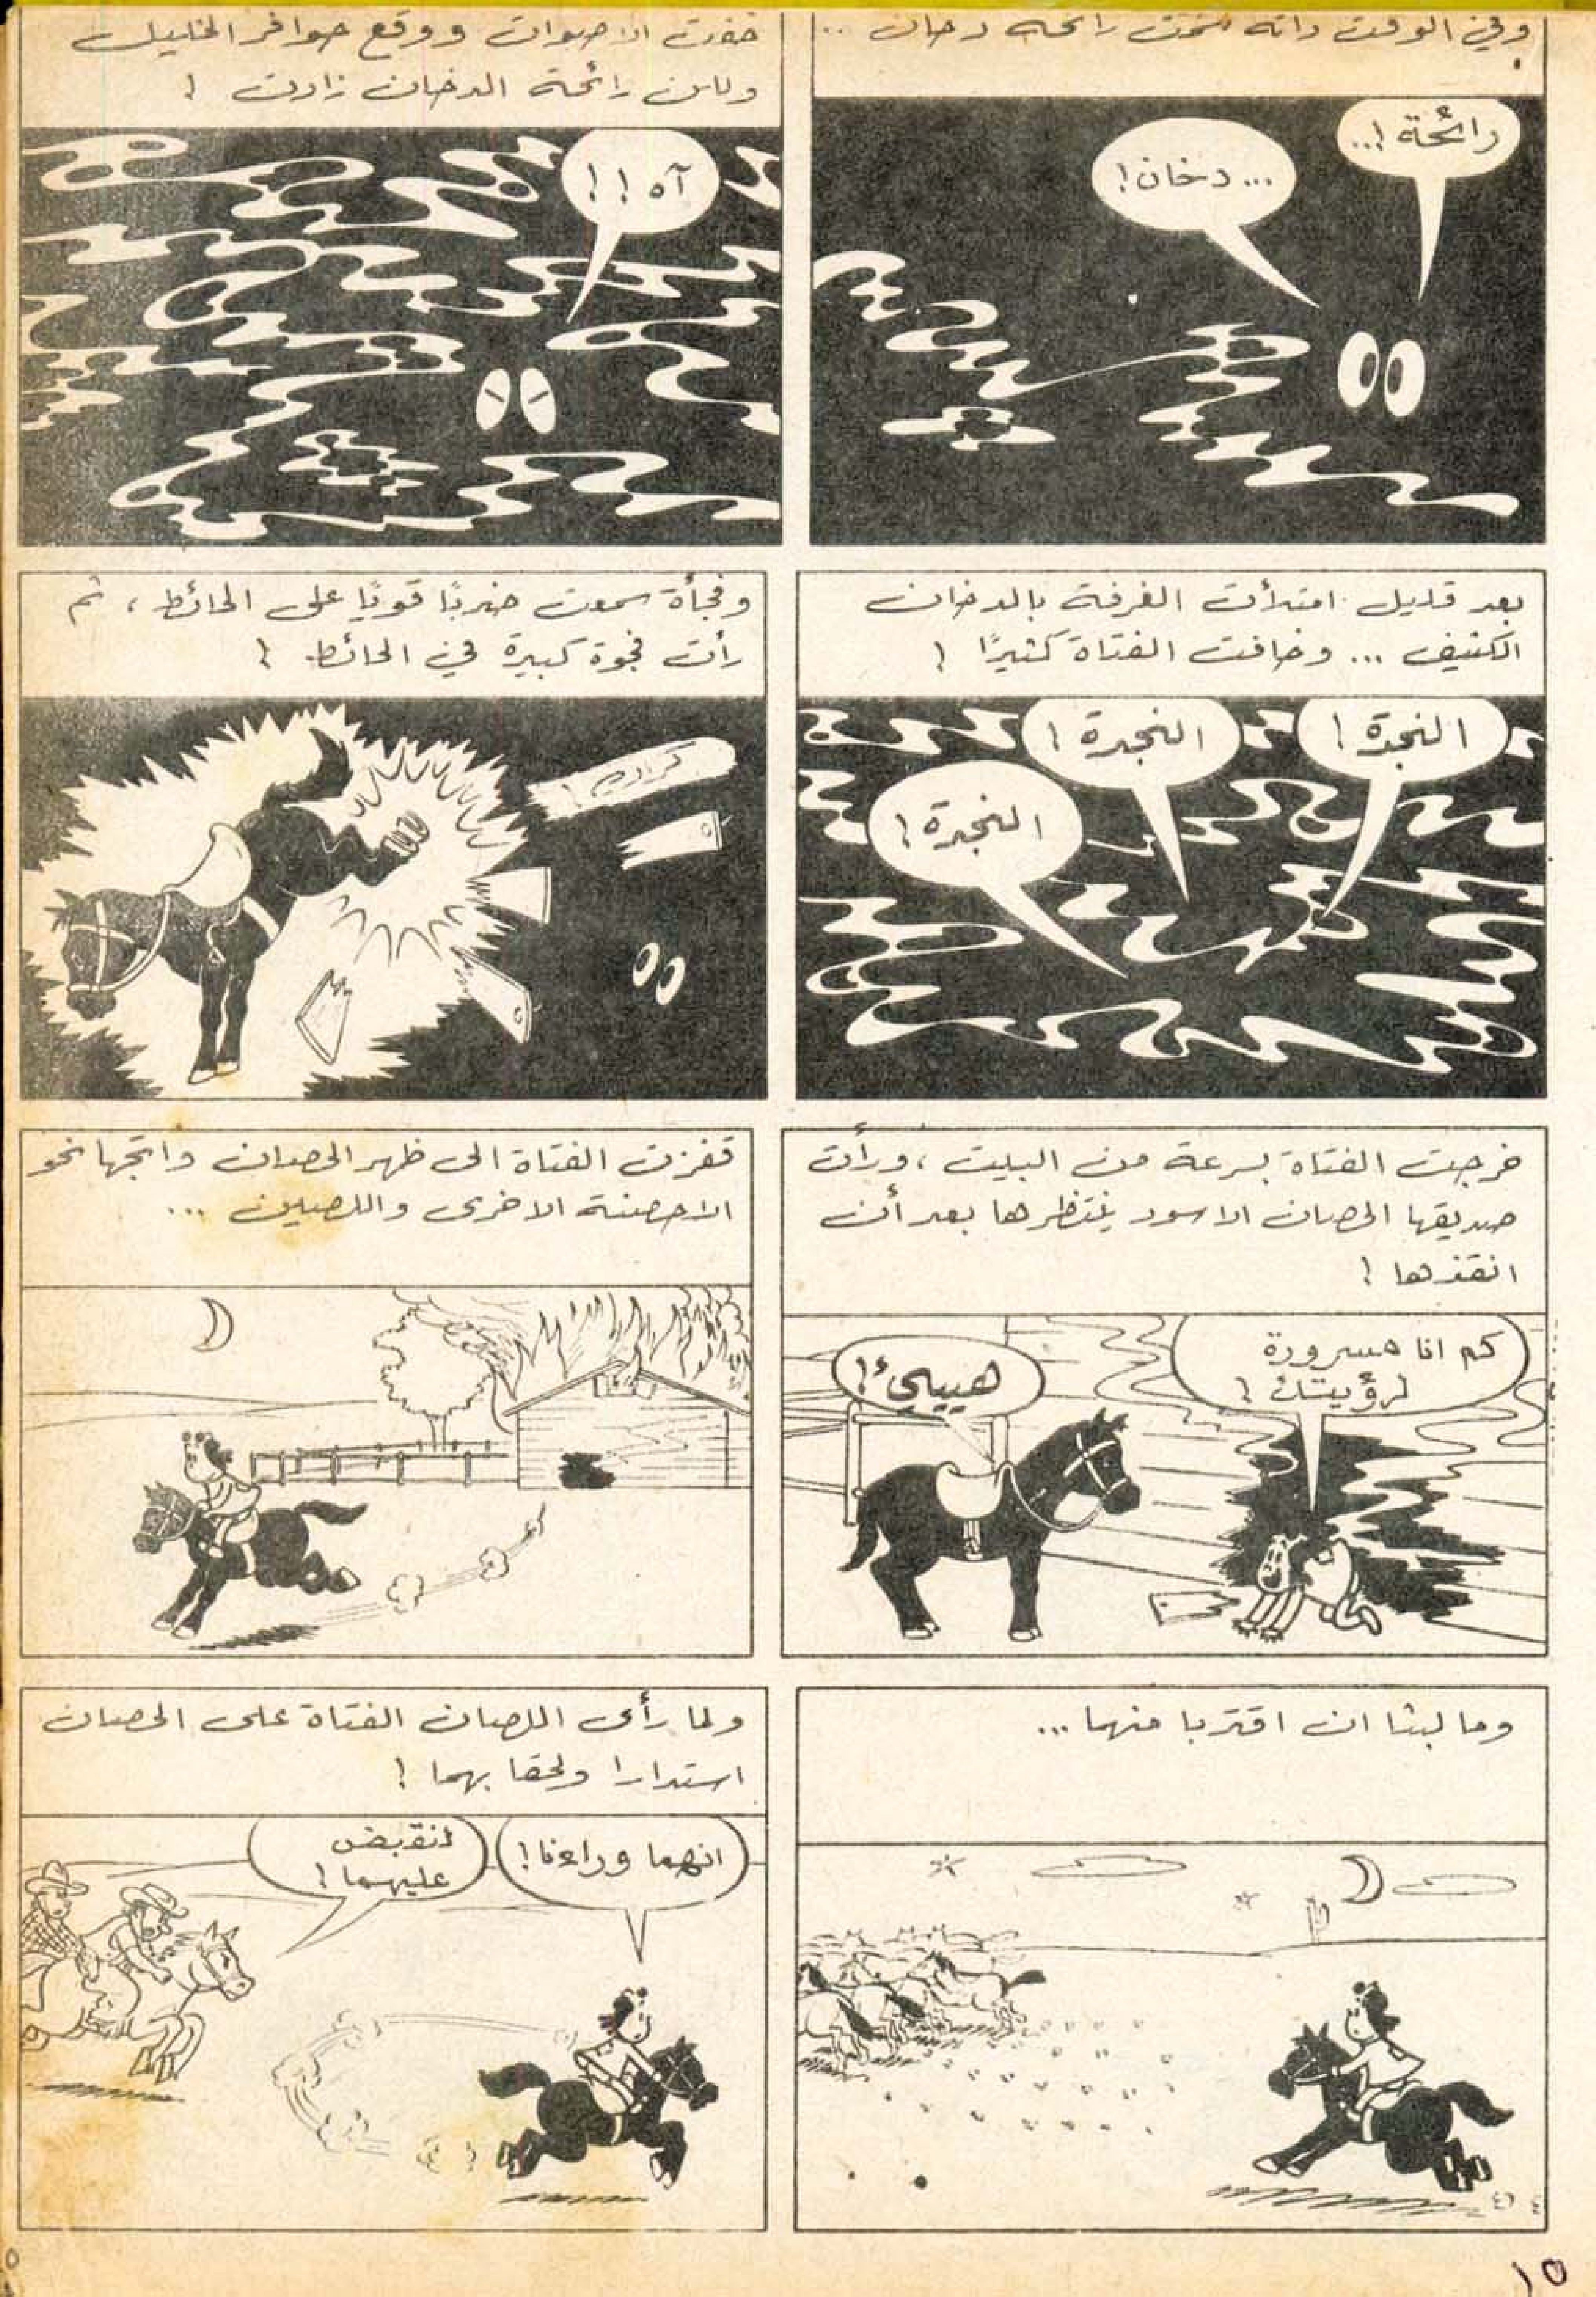 وفي الوقت ذاته شمت رائحة دخان ...
رائحة !...
... دخان !
خفت الاصوات ووقع حوافر الخيل
ولكن رائحة الدخان زادت !
آه ! !
بعد قليل امتلأت الغرفة بالدخان
الكثيف ... وخافت الفتاة كثيرًا !
النجدة !
النجدة !
النجدة !
وفجأة سمعت ضربًا قويًا على الحائط ، ثم
رأت فجوة كبيرة في الحائط !
خرجت الفتاة بسرعة من البيت ، ورأت
صديقها الحصان الاسود ينتظرها بعد أن
انقذها !
كم انا مسرورة
لرؤيتك !
هيييئ !
قفزت الفتاة الى ظهر الحصان واتجها نحو
الاحصنة الاخرى واللصين ...
وما لبثا ان اقتربا منهما ...
ولما رأى اللصان الفتاة على الحصان
استدارا ولحقا بهما !
انهما وراءنا !
لنقبض
عليهما !
١٥